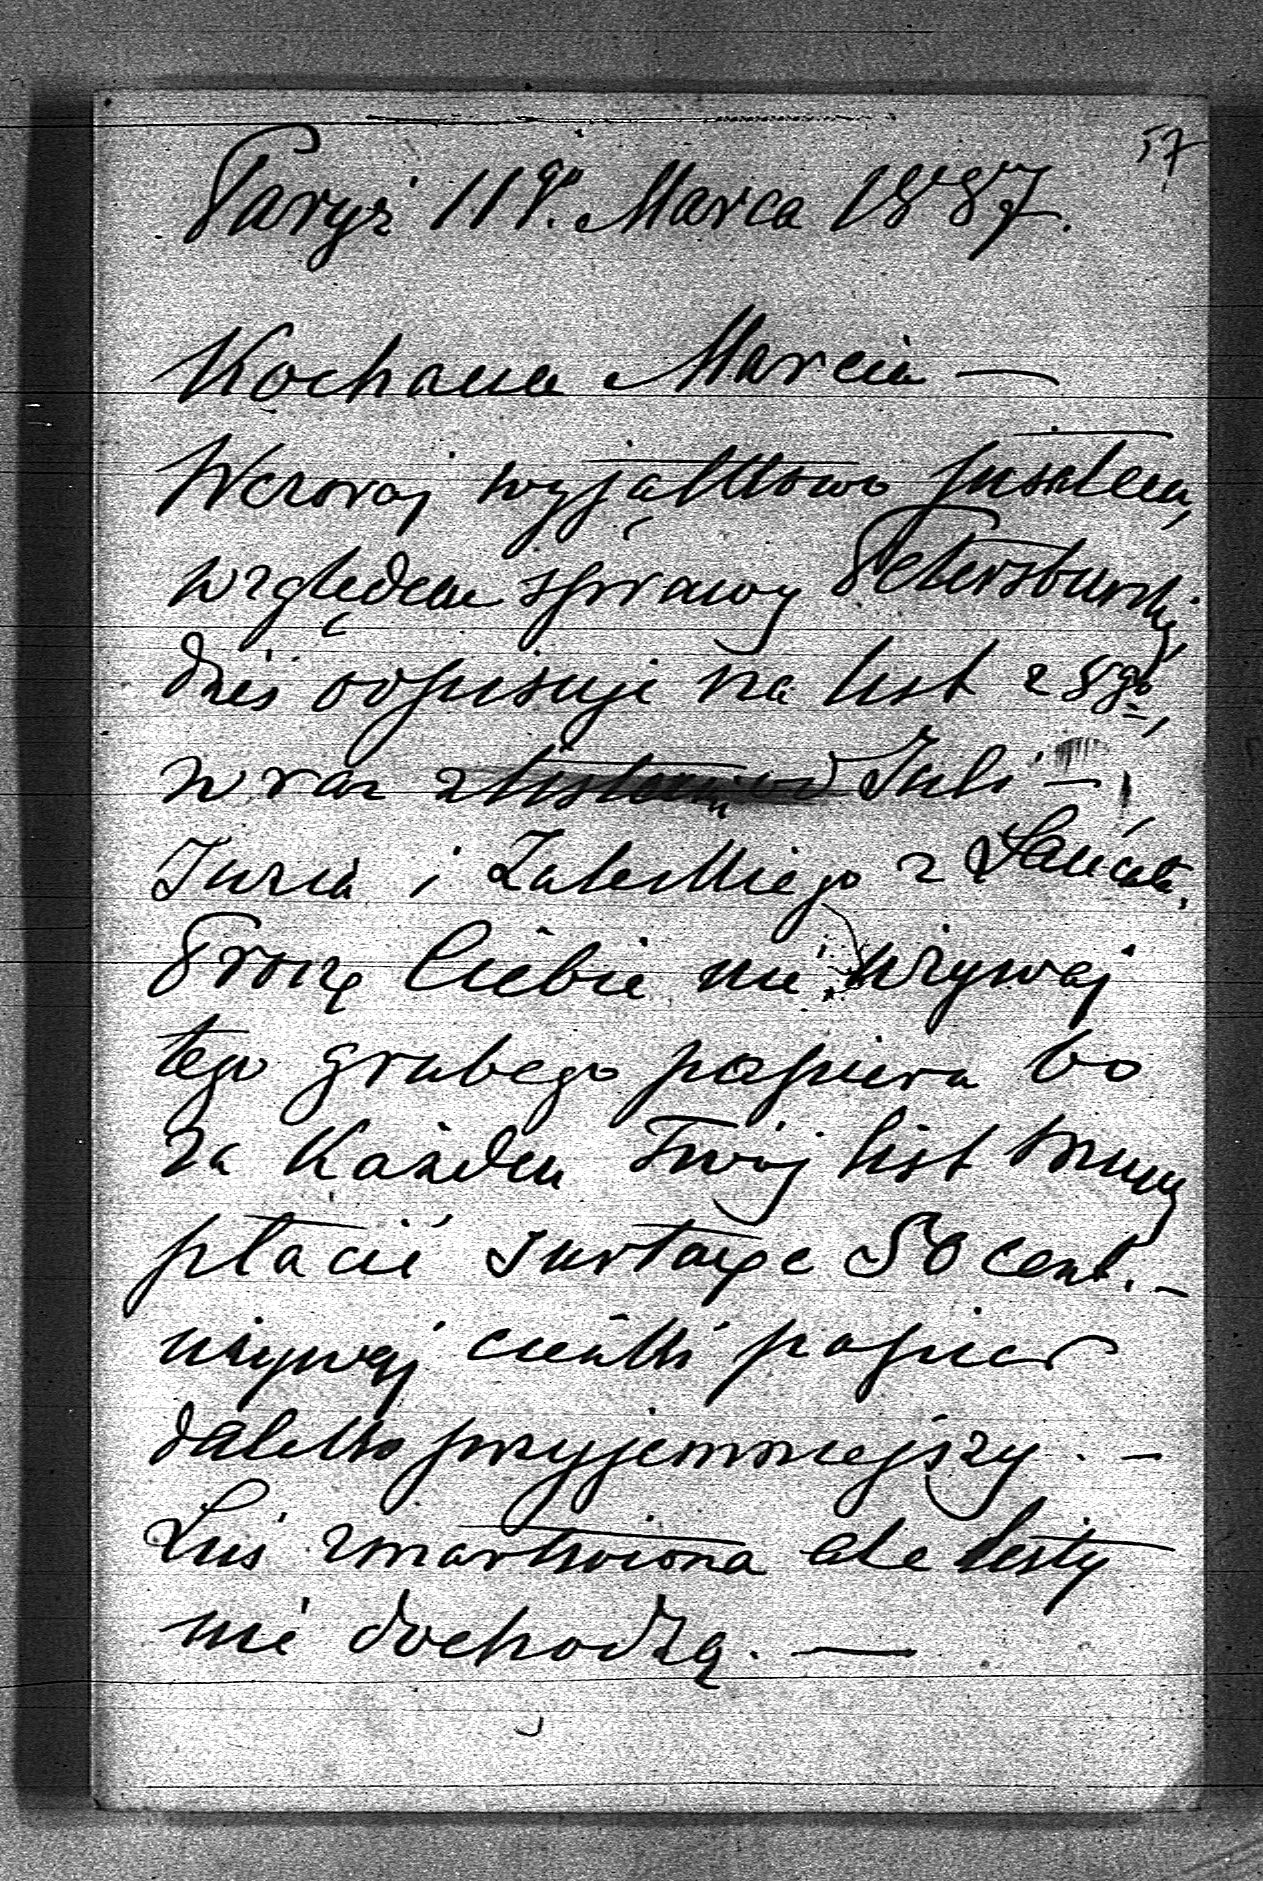 57
Paryż 11go. Marca 1887.
Kochana Marcin —
Wczoraj wyjątkowo pisałem,
względem sprawy Petersburskiej,
dziś odpisuję na list z 8go,
wraz z listem od Juli —
Juzia i Zaleskiego z Łańcuta.
Proszę Ciebie nie używaj
tego grubego papieru bo
za Każden Twój list muszę
płacić surtaxe 50 cent. —
używaj cieńki papier
daleko przyjemniejszy. —
Luś zmartwiona ale listy
nie dochodzą. —